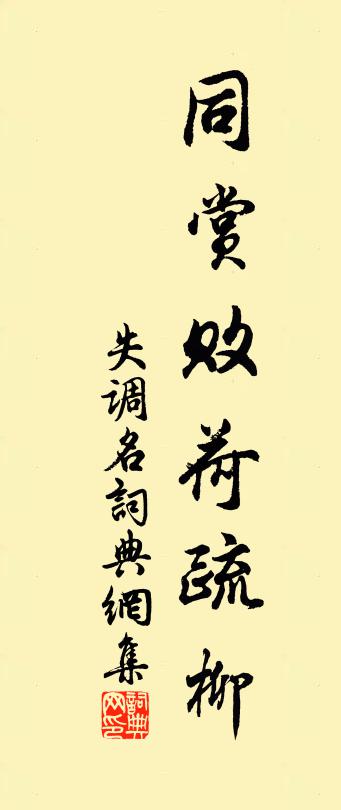 同賞敗荷疏柳
失調名詞典網集
詞典網印